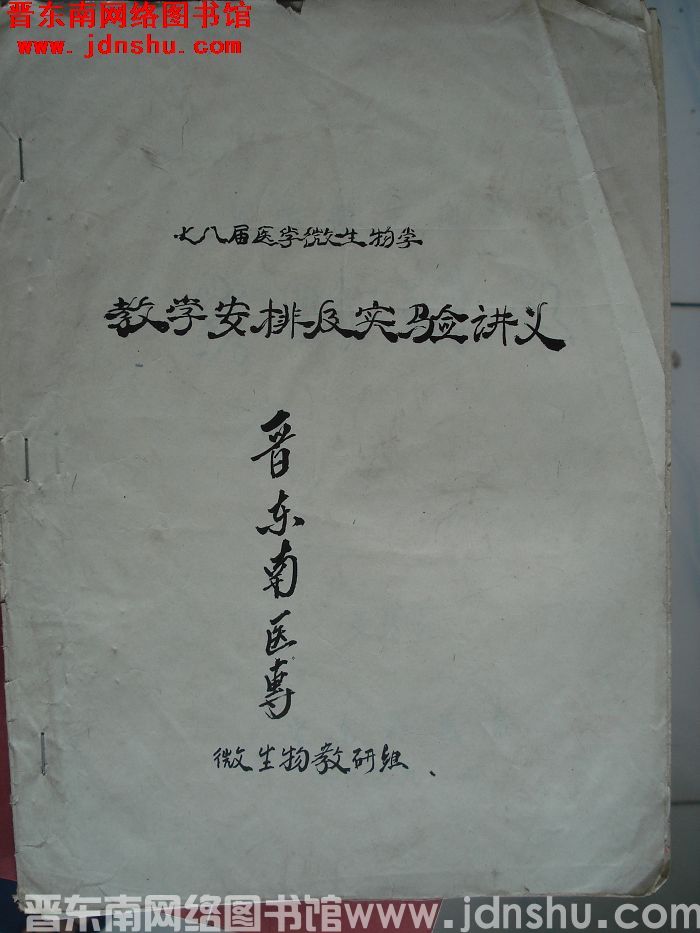 晋东南网络图书馆
www.jdnshu.com
七八届医学微生物学
教学安排及实验讲义
晋东南医专
微生物教研组、
晋东南网络图书馆www.jdnshu.com